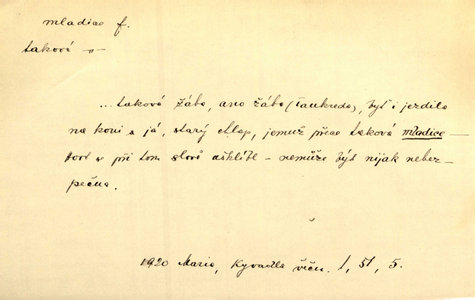 mladice f.
taková -„-
...taková žába, ano žába (Tankreda), byť i jezdila
na koni a já, starý chlap, jemuž přece taková mladice
- a při tom slově ušklíbl - nemůže být nijak nebez-
pečna.
1920 Maria, Kyvadla věčn. I, 51, 5.